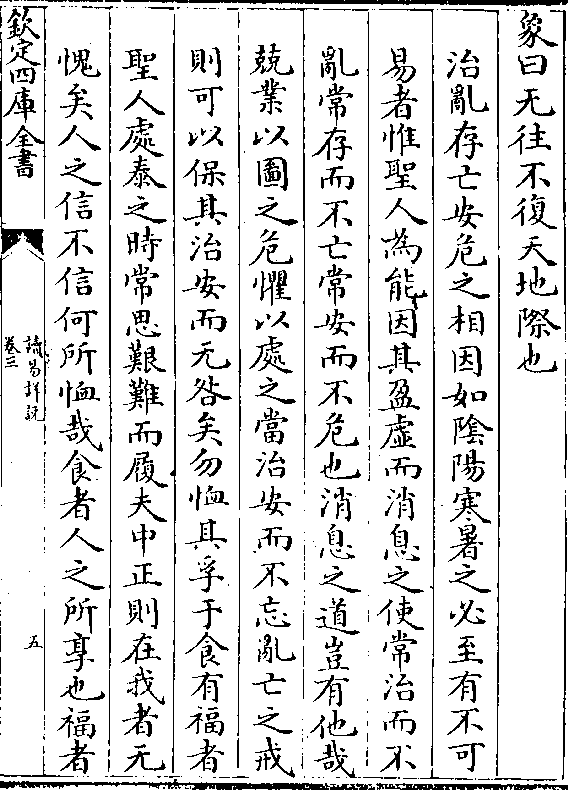 象曰无往不復天地際也
治亂存亡安危之相因如陰陽寒暑之必至有不可
易者惟聖人為能因其盈虛而消息之使常治而不
亂常存而不亡常安而不危也消息之道豈有他哉
兢業以圖之危懼以處之當治安而不忘亂亡之戒
則可以保其治安而无咎矣勿恤其孚于食有福者
聖人處泰之時常思艱難而履夫中正則在我者无
愧矣人之信不信何所恤哉食者人之所享也福者
欽定四庫全書
讀易詳說
卷三
五